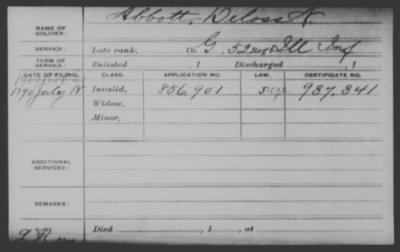 NAME OF SOLDIER: Abbott, Deloss N.
SERVICE: Late rank, Co. G, 52 Reg't Ill Inf
TERM OF SERVICE: Enlisted , 1 Discharged , 1
DATE OF FILING. CLASS. APPLICATION NO. LAW. CERTIFICATE NO.
1890 July 18 Invalid, 856,901 937,341
Widow,
Minor,
ADDITIONAL SERVICES:
REMARKS:
Died , 1 , at